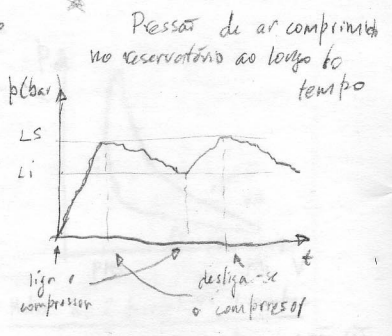 Pressão de ar comprimido
no reservatório ao longo do
tempo
p(bar)
LS
Li
t
liga o
compressor
desliga-se
o compressor